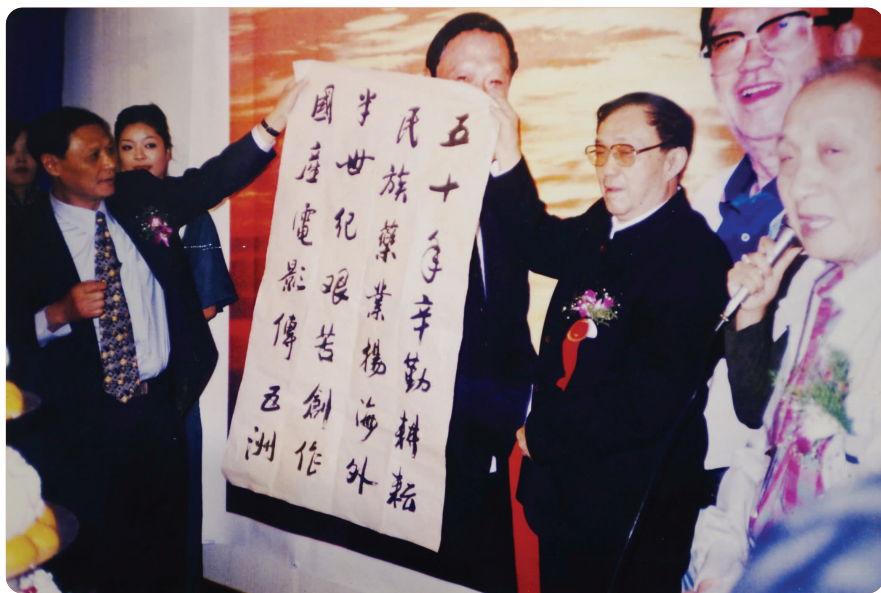 五十年辛勤耕耘
民族藥業揚海外
半世纪艰苦創作
國產電影傳五洲